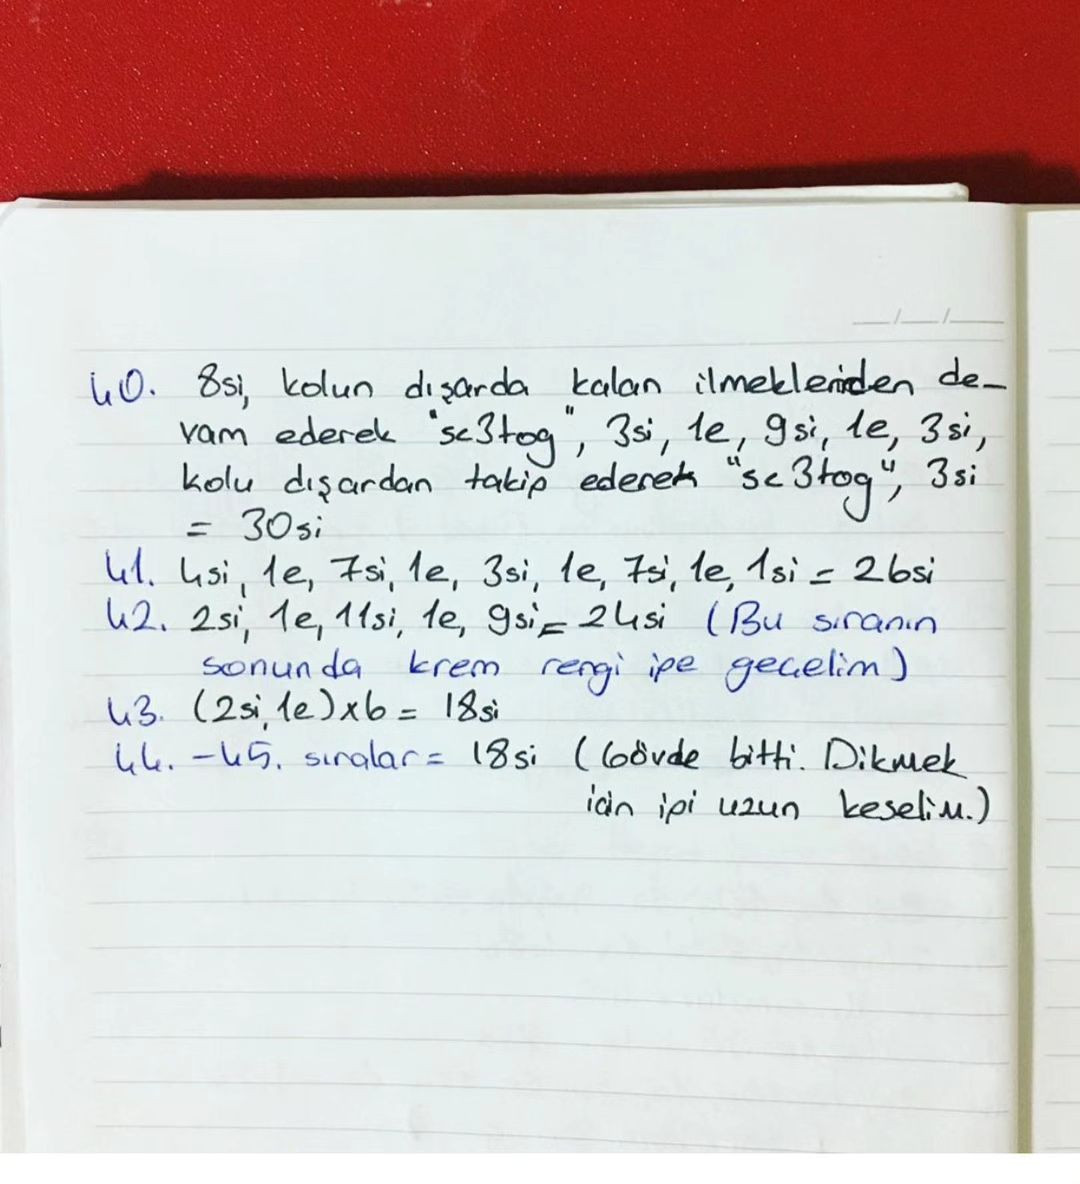 40. 8si, kolun dışarda kalan ilmeklerinden de-
vam ederek "sc3tog", 3si, 1e, 9si, 1e, 3si,
kolu dışardan takip ederek "sc3tog", 3si
= 30si
41. 4si, 1e, 7si, 1e, 3si, 1e, 7si, 1e, 1si = 26si
42. 2si, 1e, 11si, 1e, 9si = 24si (Bu sıranın
sonunda krem rengi ipe geçelim)
43. (2si, 1e)x6 = 18si
44. -45. sıralar = 18si (Gövde bitti. Dikmek
için ipi uzun keselim.)